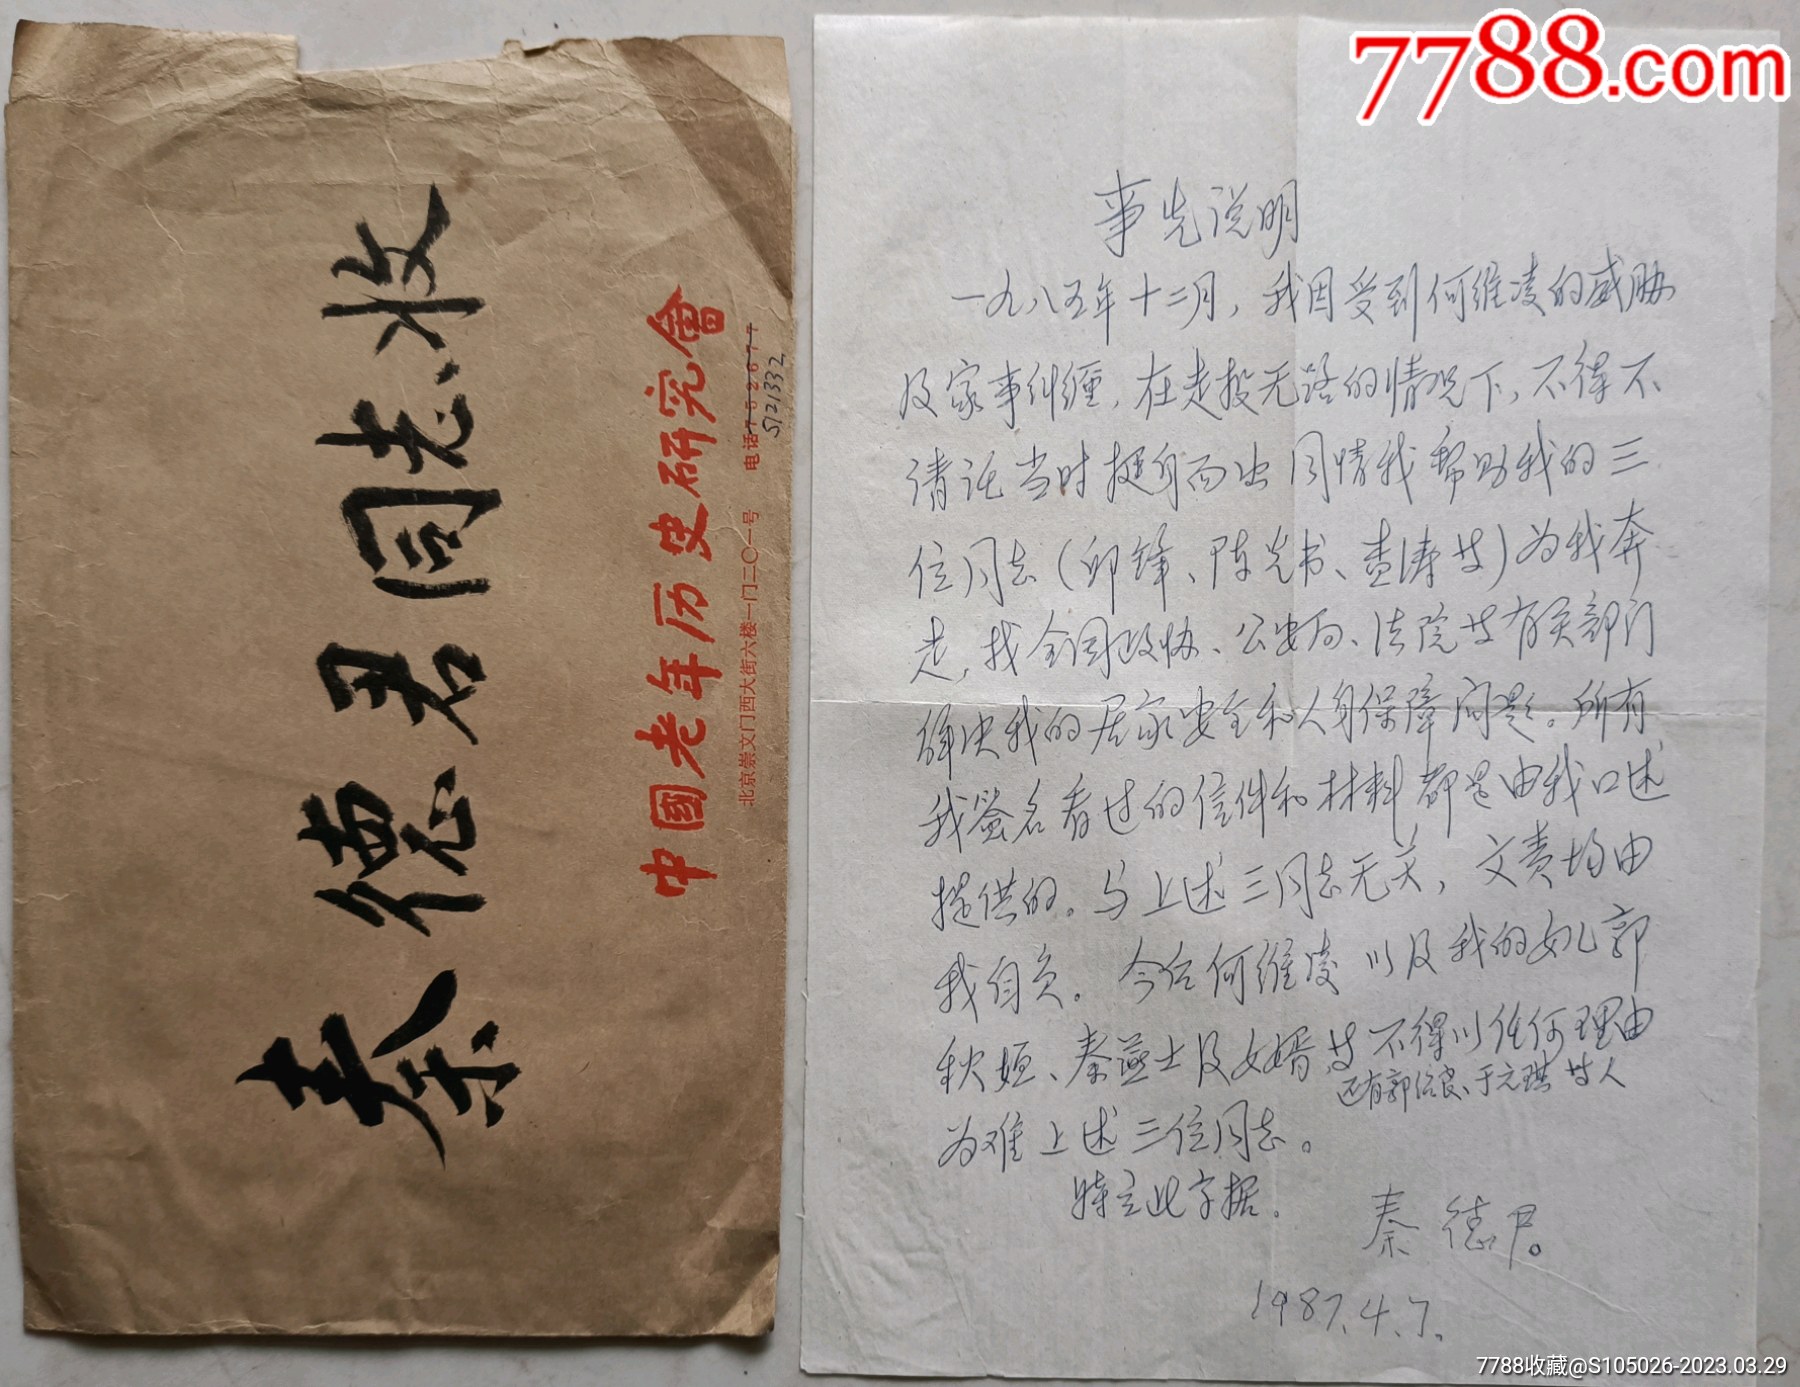 秦德君同志、收
中國老年历史研究會
北京崇文门西大街六楼一门二〇一号 电话752677
5121332
7788.com
事先说明
一九八五年十二月，我因受到何维凌的威胁
及家事纠缠，在走投无路的情况下，不得不
请托当时挺身而出同情我帮助我的三
位同志(邱锋、陈光书、查涛等)为我奔
走，找全国政协、公安局、法院等有关部门
解决我的居家安全和人身保障问题。所有
我签名看过的信件和材料，都是由我口述
提供的。与上述三同志无关，文责均由
我自负。今后何维凌以及我的女儿郭
秋姮、秦燕士及女婿等不得以任何理由
还有郭信良、于元琪等人
为难上述三位同志。
特立此字据。
秦德君。
1987.4.7.
7788收藏@S105026-2023.03.29